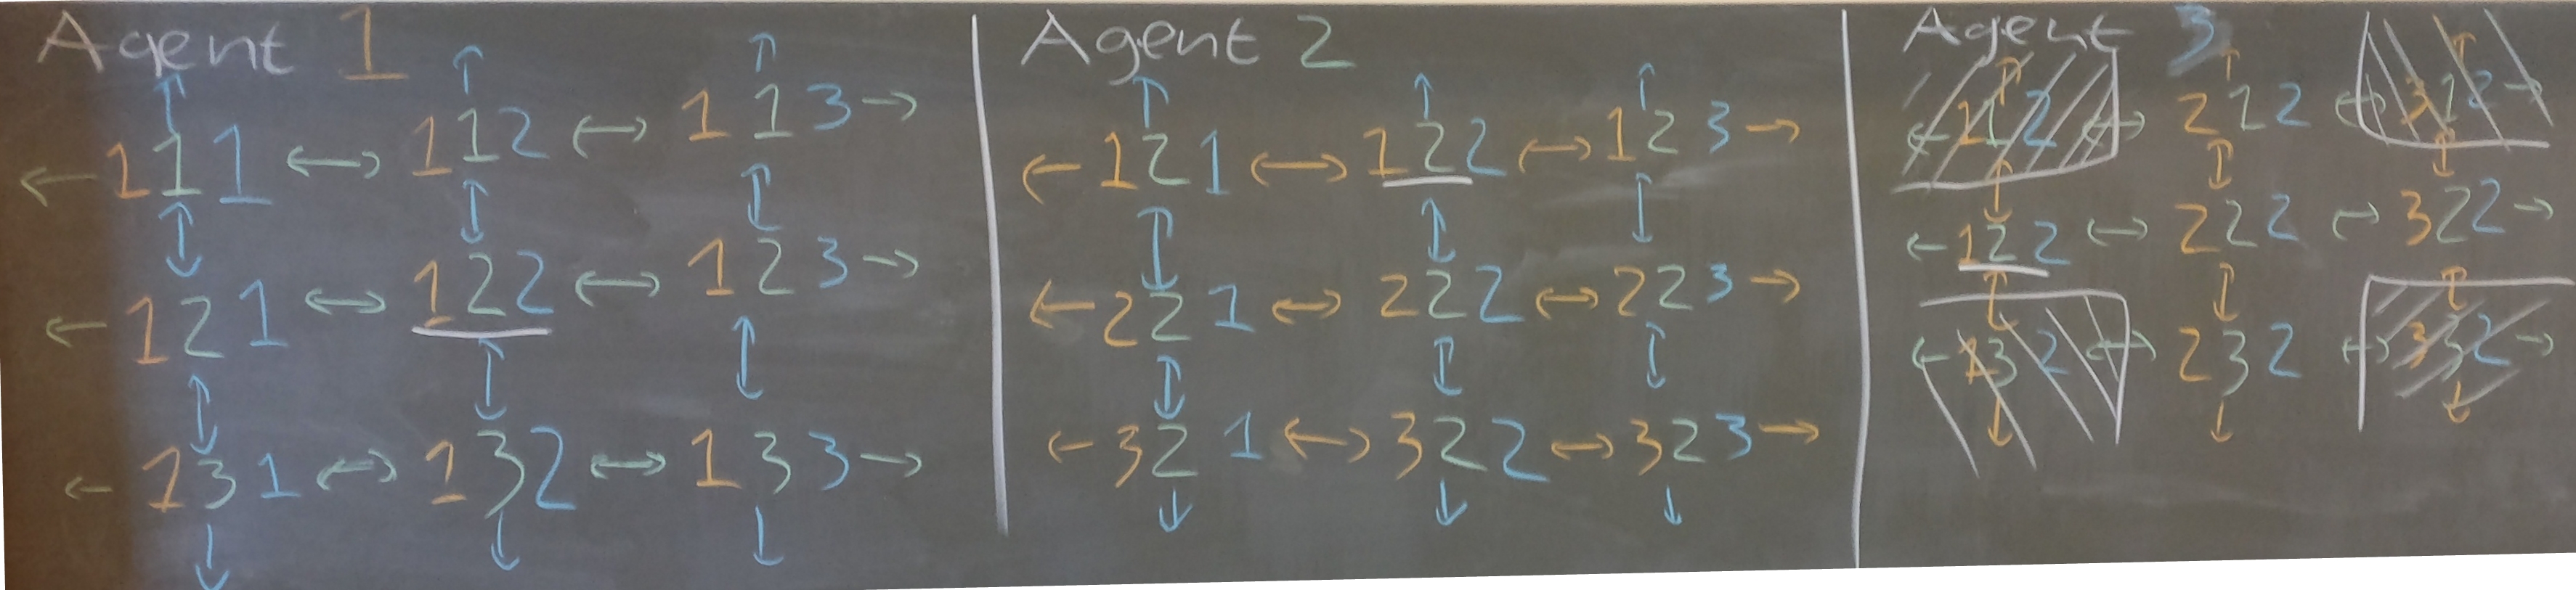 Agent 1
111 ↔ 112 ↔ 113 →
← 121 ↔ 122 ↔ 123 →
← 131 ↔ 132 ↔ 133 →
Agent 2
← 121 ↔ 122 ↔ 123 →
← 221 ↔ 222 ↔ 223 →
← 321 ↔ 322 ↔ 323 →
Agent 3
← 112 ↔ 212 ↔ 312 →
← 122 ↔ 222 ↔ 322 →
← 132 ↔ 232 ↔ 332 →